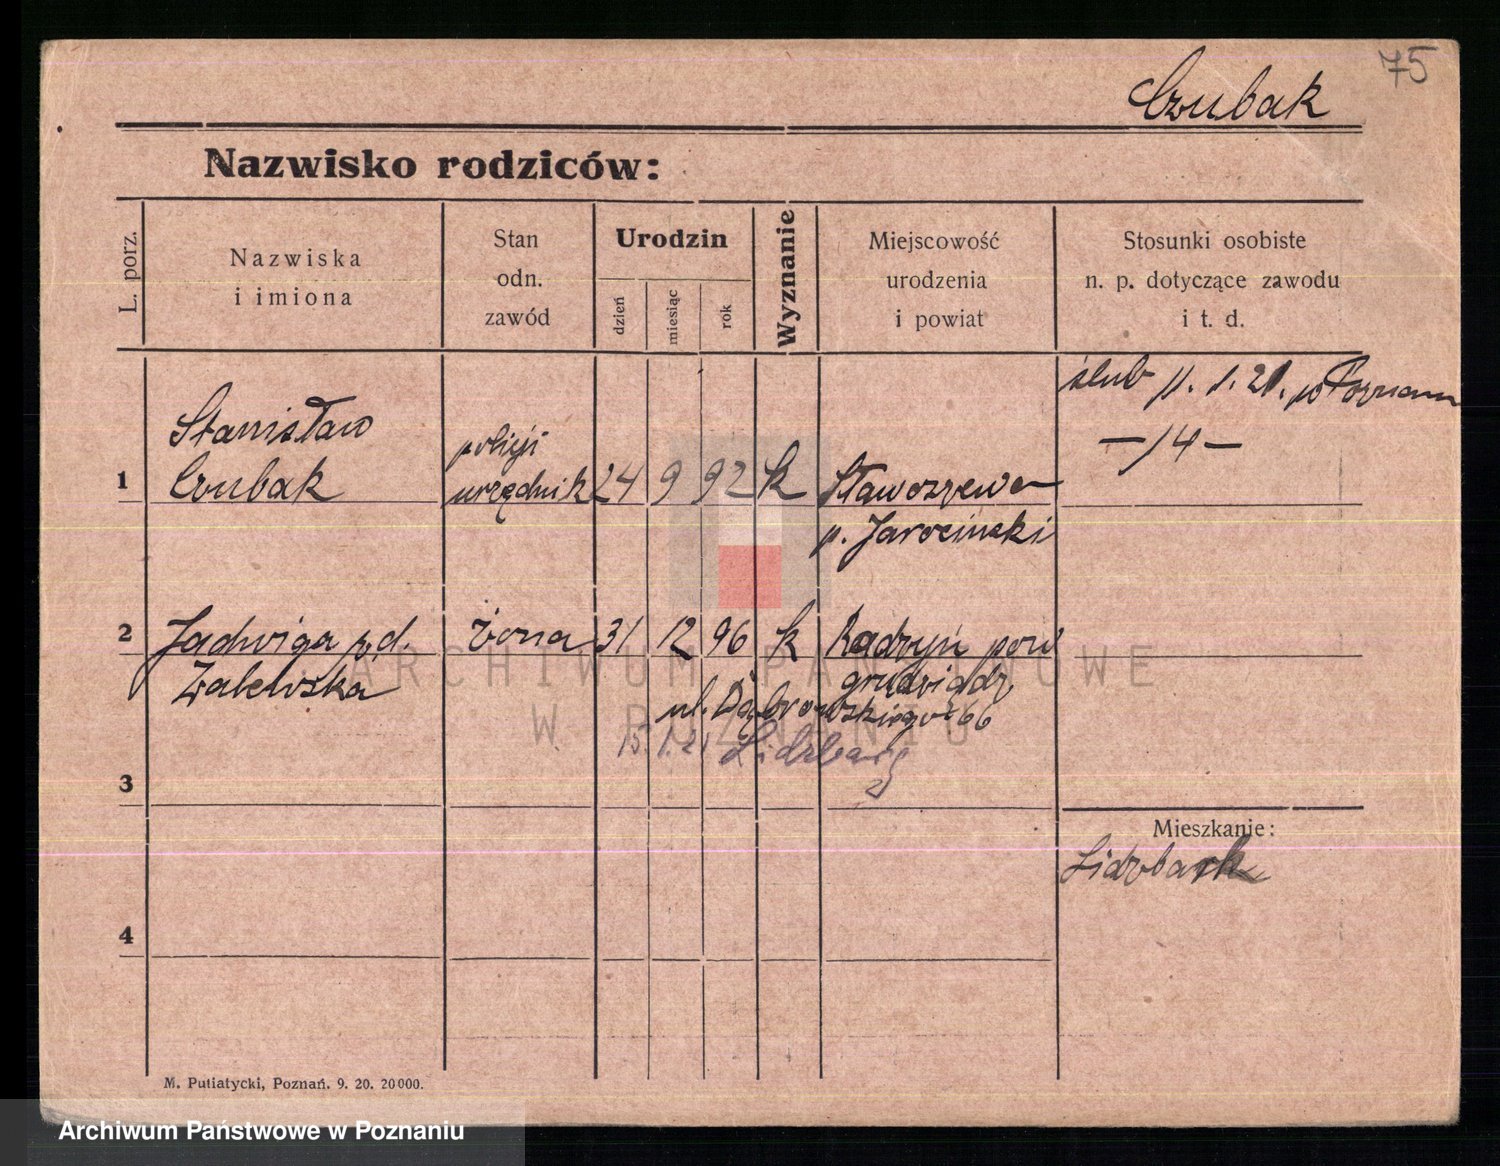 75
Czubak
Nazwisko rodziców:
L. porz.
Nazwiska
i imiona
Stan
odn.
zawód
Urodzin
dzień
miesiąc
rok
Wyznanie
Miejscowość
urodzenia
i powiat
Stosunki osobiste
n. p. dotyczące zawodu
i t. d.
ślub p. 1. 21. w Poznaniu
—14—
1
Stanisław
Czubak
policji
urzędnik
24 9 92 k
Stawoszewo
p. Jarociński
2
Jadwiga z d.
Zalewska
żona
31 12 96 k
Radzyń pow
grudziądz
ul. Dąbrowskiego 66
15. 1. 21 Lidzbarg
3
Mieszkanie:
Lidzbark
4
M. Putiatycki, Poznań. 9. 20. 20000.
ARCHIWUM PAŃSTWOWE
W POZNANIU
Archiwum Państwowe w Poznaniu